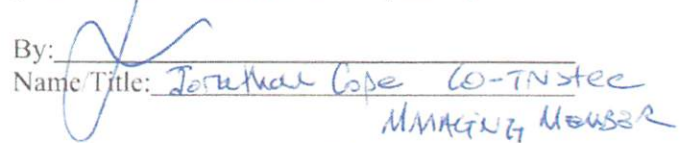 By:
Name/Title: Jonathan Cope CO-TRUSTEE
MANAGING MEMBER